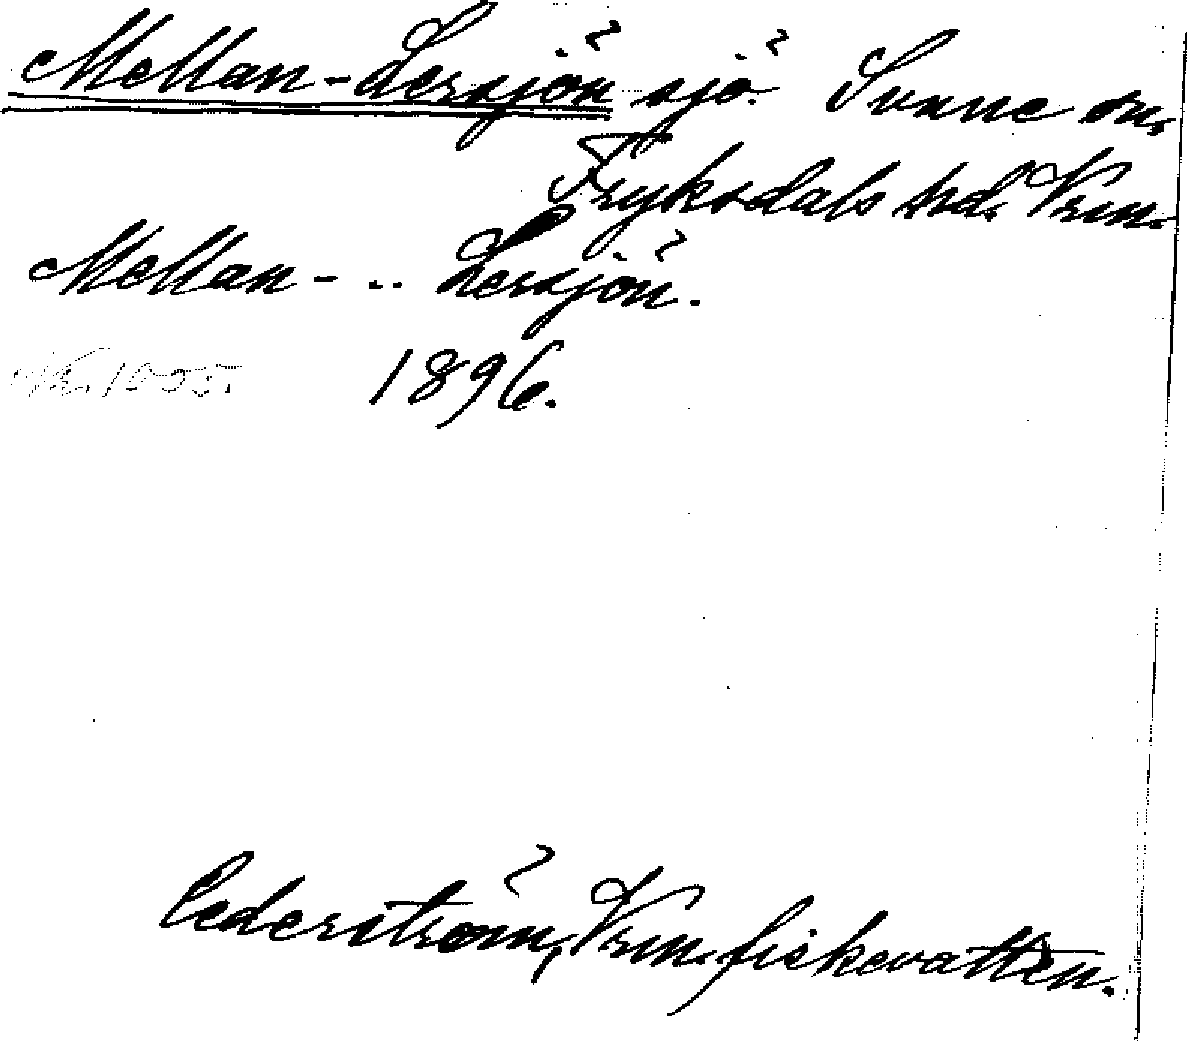 Mellan-Lersjön sjö. Sunne sn.
Fryksdals hd. Vrm.
Mellan- .. Lersjön.
1896.
Cederström, Vrm. fiskevatten.